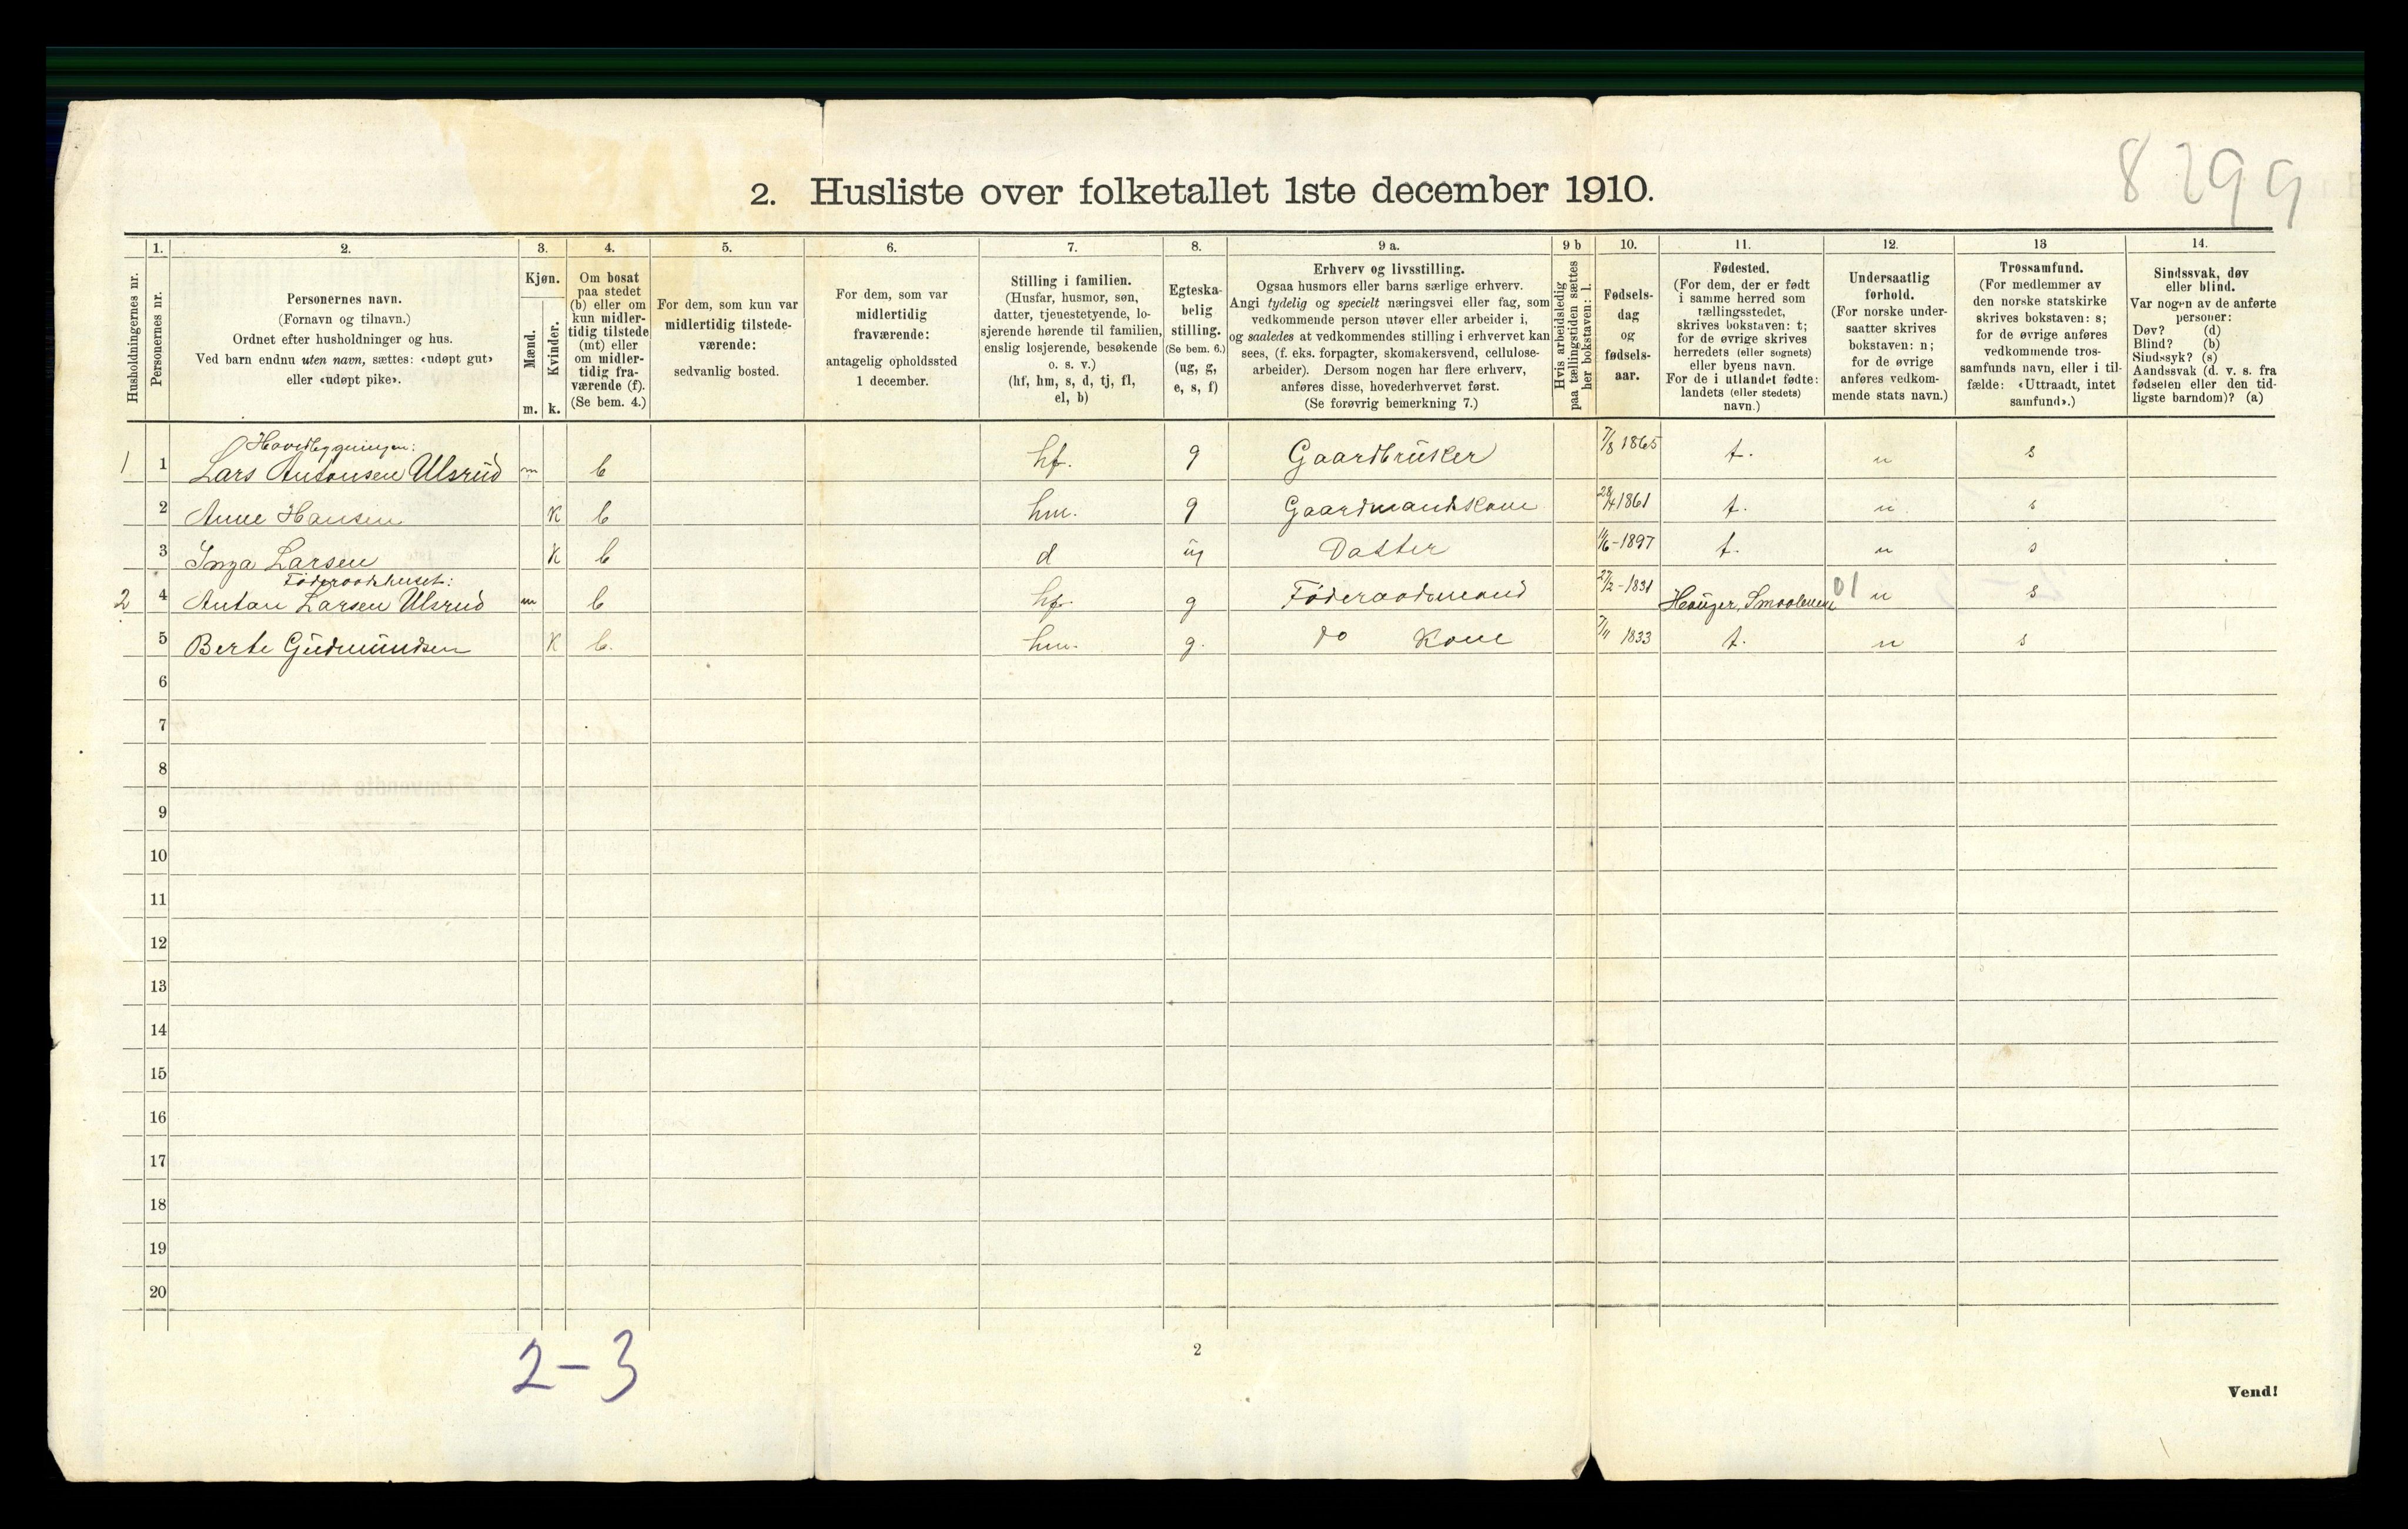 8299
2. Husliste over folketallet 1ste december 1910.
1. 2. 3. 4. 5. 6. 7. 8. 9 a. 9 b 10. 11. 12. 13 14.
Husholdningernes nr.
Personernes nr.
Personernes navn.
(Fornavn og tilnavn.)
Ordnet efter husholdninger og hus.
Ved barn endnu uten navn, sættes: «udøpt gut»
eller «udøpt pike».
Kjøn.
Mænd.
Kvinder.
m. k.
Om bosat
paa stedet
(b) eller om
kun midler-
tidig tilstede
(mt) eller
om midler-
tidig fra-
værende (f).
(Se bem. 4.)
For dem, som kun var
midlertidig tilstede-
værende:
sedvanlig bosted.
For dem, som var
midlertidig
fraværende:
antagelig opholdssted
1 december.
Stilling i familien.
(Husfar, husmor, søn,
datter, tjenestetyende, lo-
sjerende hørende til familien,
enslig losjerende, besøkende
o. s. v.)
(hf, hm, s, d, tj, fl,
el, b)
Egteska-
belig
stilling.
(Se bem. 6.)
(ug, g,
e, s, f)
Erhverv og livsstilling.
Ogsaa husmors eller barns særlige erhverv.
Angi tydelig og specielt næringsvei eller fag, som
vedkommende person utøver eller arbeider i,
og saaledes at vedkommendes stilling i erhvervet kan
sees, (f. eks. forpagter, skomakersvend, cellulose-
arbeider). Dersom nogen har flere erhverv,
anføres disse, hovederhvervet først.
(Se forøvrig bemerkning 7.)
Hvis arbeidsledig
paa tællingstiden sættes
her bokstaven: l.
Fødsels-
dag
og
fødsels-
aar.
Fødested.
(For dem, der er født
i samme herred som
tællingsstedet,
skrives bokstaven: t;
for de øvrige skrives
herredets (eller sognets)
eller byens navn.
For de i utlandet fødte:
landets (eller stedets)
navn.)
Undersaatlig
forhold.
(For norske under-
saatter skrives
bokstaven: n;
for de øvrige
anføres vedkom-
mende stats navn.)
Trossamfund.
(For medlemmer av
den norske statskirke
skrives bokstaven: s;
for de øvrige anføres
vedkommende tros-
samfunds navn, eller i til-
fælde: «Uttraadt, intet
samfund».)
Sindssvak, døv
eller blind.
Var nogen av de anførte
personer:
Døv? (d)
Blind? (b)
Sindssyk? (s)
Aandssvak (d. v. s. fra
fødselen eller den tid-
ligste barndom)? (a)
Hovedbygningen:
1 1 Lars Antonsen Ulsrud m b hf. g Gaardbruker 7/8 1865 t. n s
2 Anne Hansen K b hm. g Gaardmandskone 28/4 1861 t. n s
3 Inga Larsen K b d ug Datter 11/6-1897 t. n s
Föderaadshuset:
2 4 Anton Larsen Ulsrud m b hf. g Föderaadsmand 27/2-1831 Hauger, Smaalenene 01 n s
5 Berte Gudmundsen K b. hm. g. do Kone 7/11 1833 t. n s
6
7
8
9
10
11
12
13
14
15
16
17
18
19
20
2-3
2
Vend!